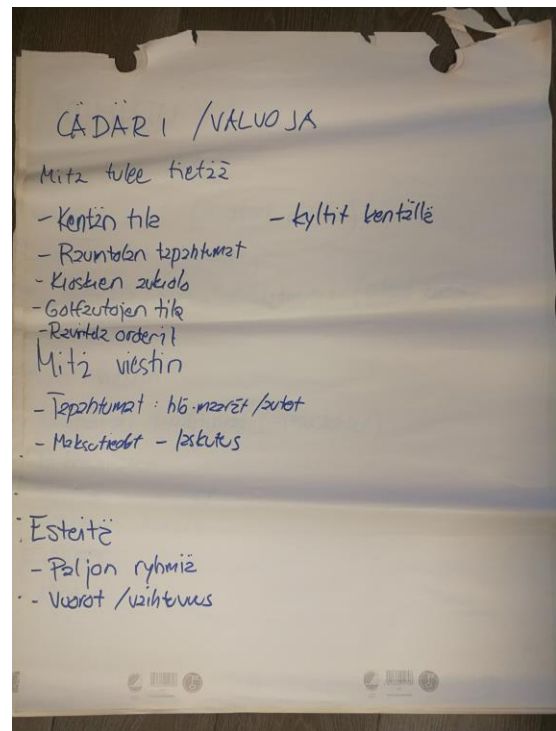 CÄDÄRI / VALVOJA
Mitä tulee tietää
- Kentän tila
- kyltit kentällä
- Ravintolan tapahtumat
- Kioskien aukiolo
- Golfautojen tila
- Ravintola
Mitä viestin
- Tapahtumat : hlö.määrät / autot
- Maksutiedot - laskutus
Esteitä
- Paljon ryhmiä
- Vuorot / vaihtuvuus